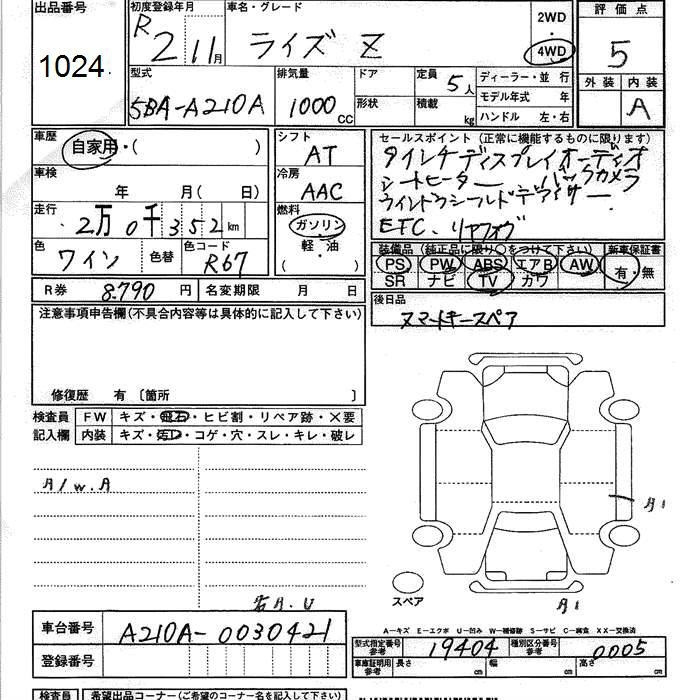 出品番号
1024
初度登録年月
R 2 11月
車名・グレード
ライズ Z
2WD
4WD
評価点
5
外装 内装
A
型式
5BA-A210A
排気量
1000 CC
ドア
形状
定員 5人
積載 kg
ディーラー・並 行
モデル年式 年
ハンドル 左・右
車歴
自家用・( )
車検
年 月( 日)
走行
2万0千352km
色
ワイン
色替
色コード
R67
シフト
AT
冷房
AAC
燃料
ガソリン
軽・油
( )
セールスポイント(正常に機能するものに限ります)
9インチディスプレイオーディオ
シートヒーター バックカメラ
ウインドウシールドデアイサー
ETC、リヤフォグ
装備品(純正品に限り○をつけて下さい)
PS PW ABS エアB AW
SR ナビ TV カワ
新車保証書
有・無
R券 8,790 円
名変期限 月 日
後日品
スマートキースペア
注意事項申告欄(不具合内容等は具体的に記入して下さい)
修復歴 有〔箇所 〕
検査員
記入欄
FW キズ・飛石・ヒビ割・リペア跡・×要
内装 キズ・汚レ・コゲ・穴・スレ・キレ・破レ
A/w.A
若A.U
A1
A1
スペア
A-キズ E-エクボ U-凹み W-補修跡 S-サビ C-腐食 XX-交換済
車台番号
A210A-0030421
登録番号
型式指定番号
参考
19404
種別区分番号
参考
0005
車庫証明用
参考
長さ cm
幅 cm
高さ cm
検査員
希望出品コーナー(ご希望のコーナー名を記入して下さい)